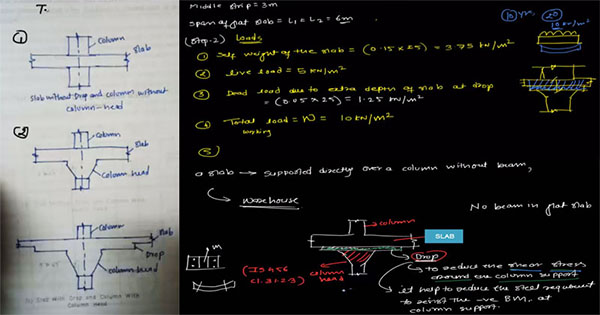 T.
①
column
slab
Slab without Drop and column without
column-head
②
column
slab
column head
column
slab
Drop
column head
(c) Slab with Drop and Column with
Column Head
Middle strip = 3m
Span of flat slab = L1 = L2 = 6m
(Step.2) Loads
① Self weight of the slab = (0.15 x 25) = 3.75 kN/m²
② Live load = 5 kN/m²
③ Dead load due to extra depth of slab at drop
= (0.05 x 25) = 1.25 kN/m²
④ Total load = W = 10 kN/m²
working
⑤
10
20
10 kN/m²
a slab → supported directly over a column without beam,
warehouse
No beam in flat slab
column
SLAB
m
Drop
(IS 456
column
head
to reduce the shear stress
around the column support
it help to reduce the steel requirement
to resist the -ve B.M. at
column support.